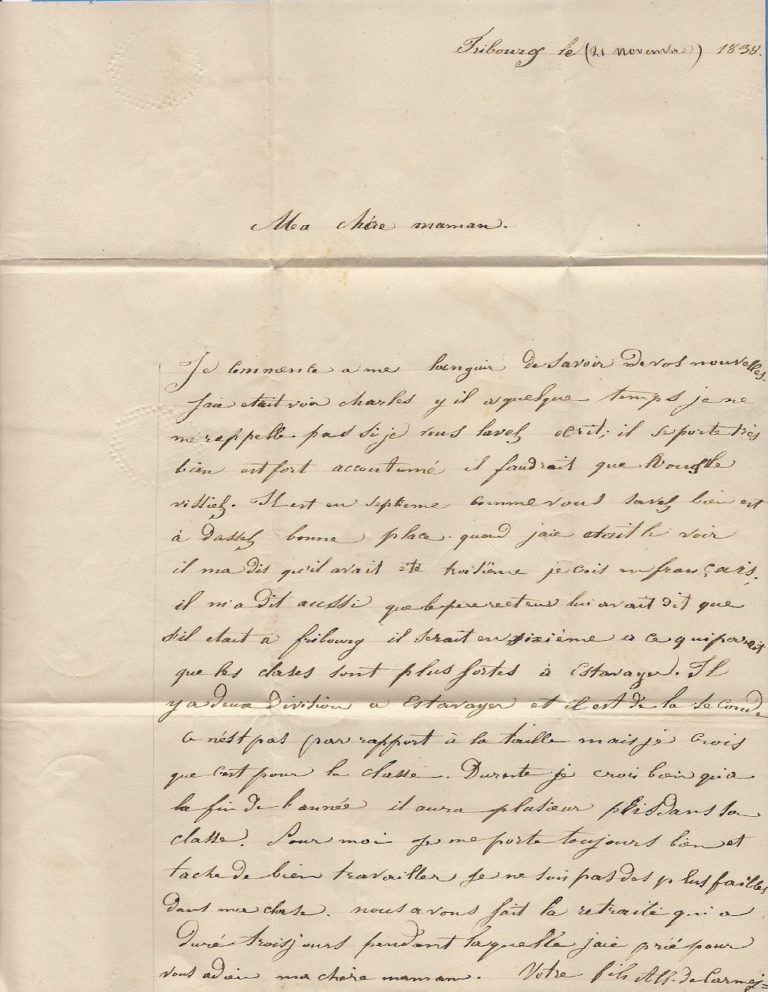 Fribourg le (21 novembre) 1838.
Ma chère maman.
Je commence a me languir de savoir de vos nouvelles.
Jaie etait voir charles y il a quelque temps je ne
me rappelle pas si je vous lavez ecrit; il se porte très
bien est fort accoutumé il faudrait que vous le
vissiez. Il est en septieme comme vous savez bien est
à dassez bonne place. quand jaie etait le voir
il ma dit qu'il avait été troisième je crois en français.
il m'a dit aussi que le pere recteur lui avait dit que
s'il etait a fribourg il serait en sixième a ce qui parait
que les clases sont plus fortes à Estavayer. Il
y a deux division a Estavayer et il est de la seconde
ce n'est pas par rapport à la taille mais je crois
que c'est pour la classe. Dureste je crois bien qu'a
la fin de l'année il aura plusieur prix dans sa
classe. Pour moi je me porte toujours bien et
tache de bien travailler je ne suis pas des plus failles
dans ma clase. nous avons fait la retraite qui a
duré trois jours pendant laquelle jaie prié pour
vous adieu ma chère maman. Votre fils Alb. de Carmej=